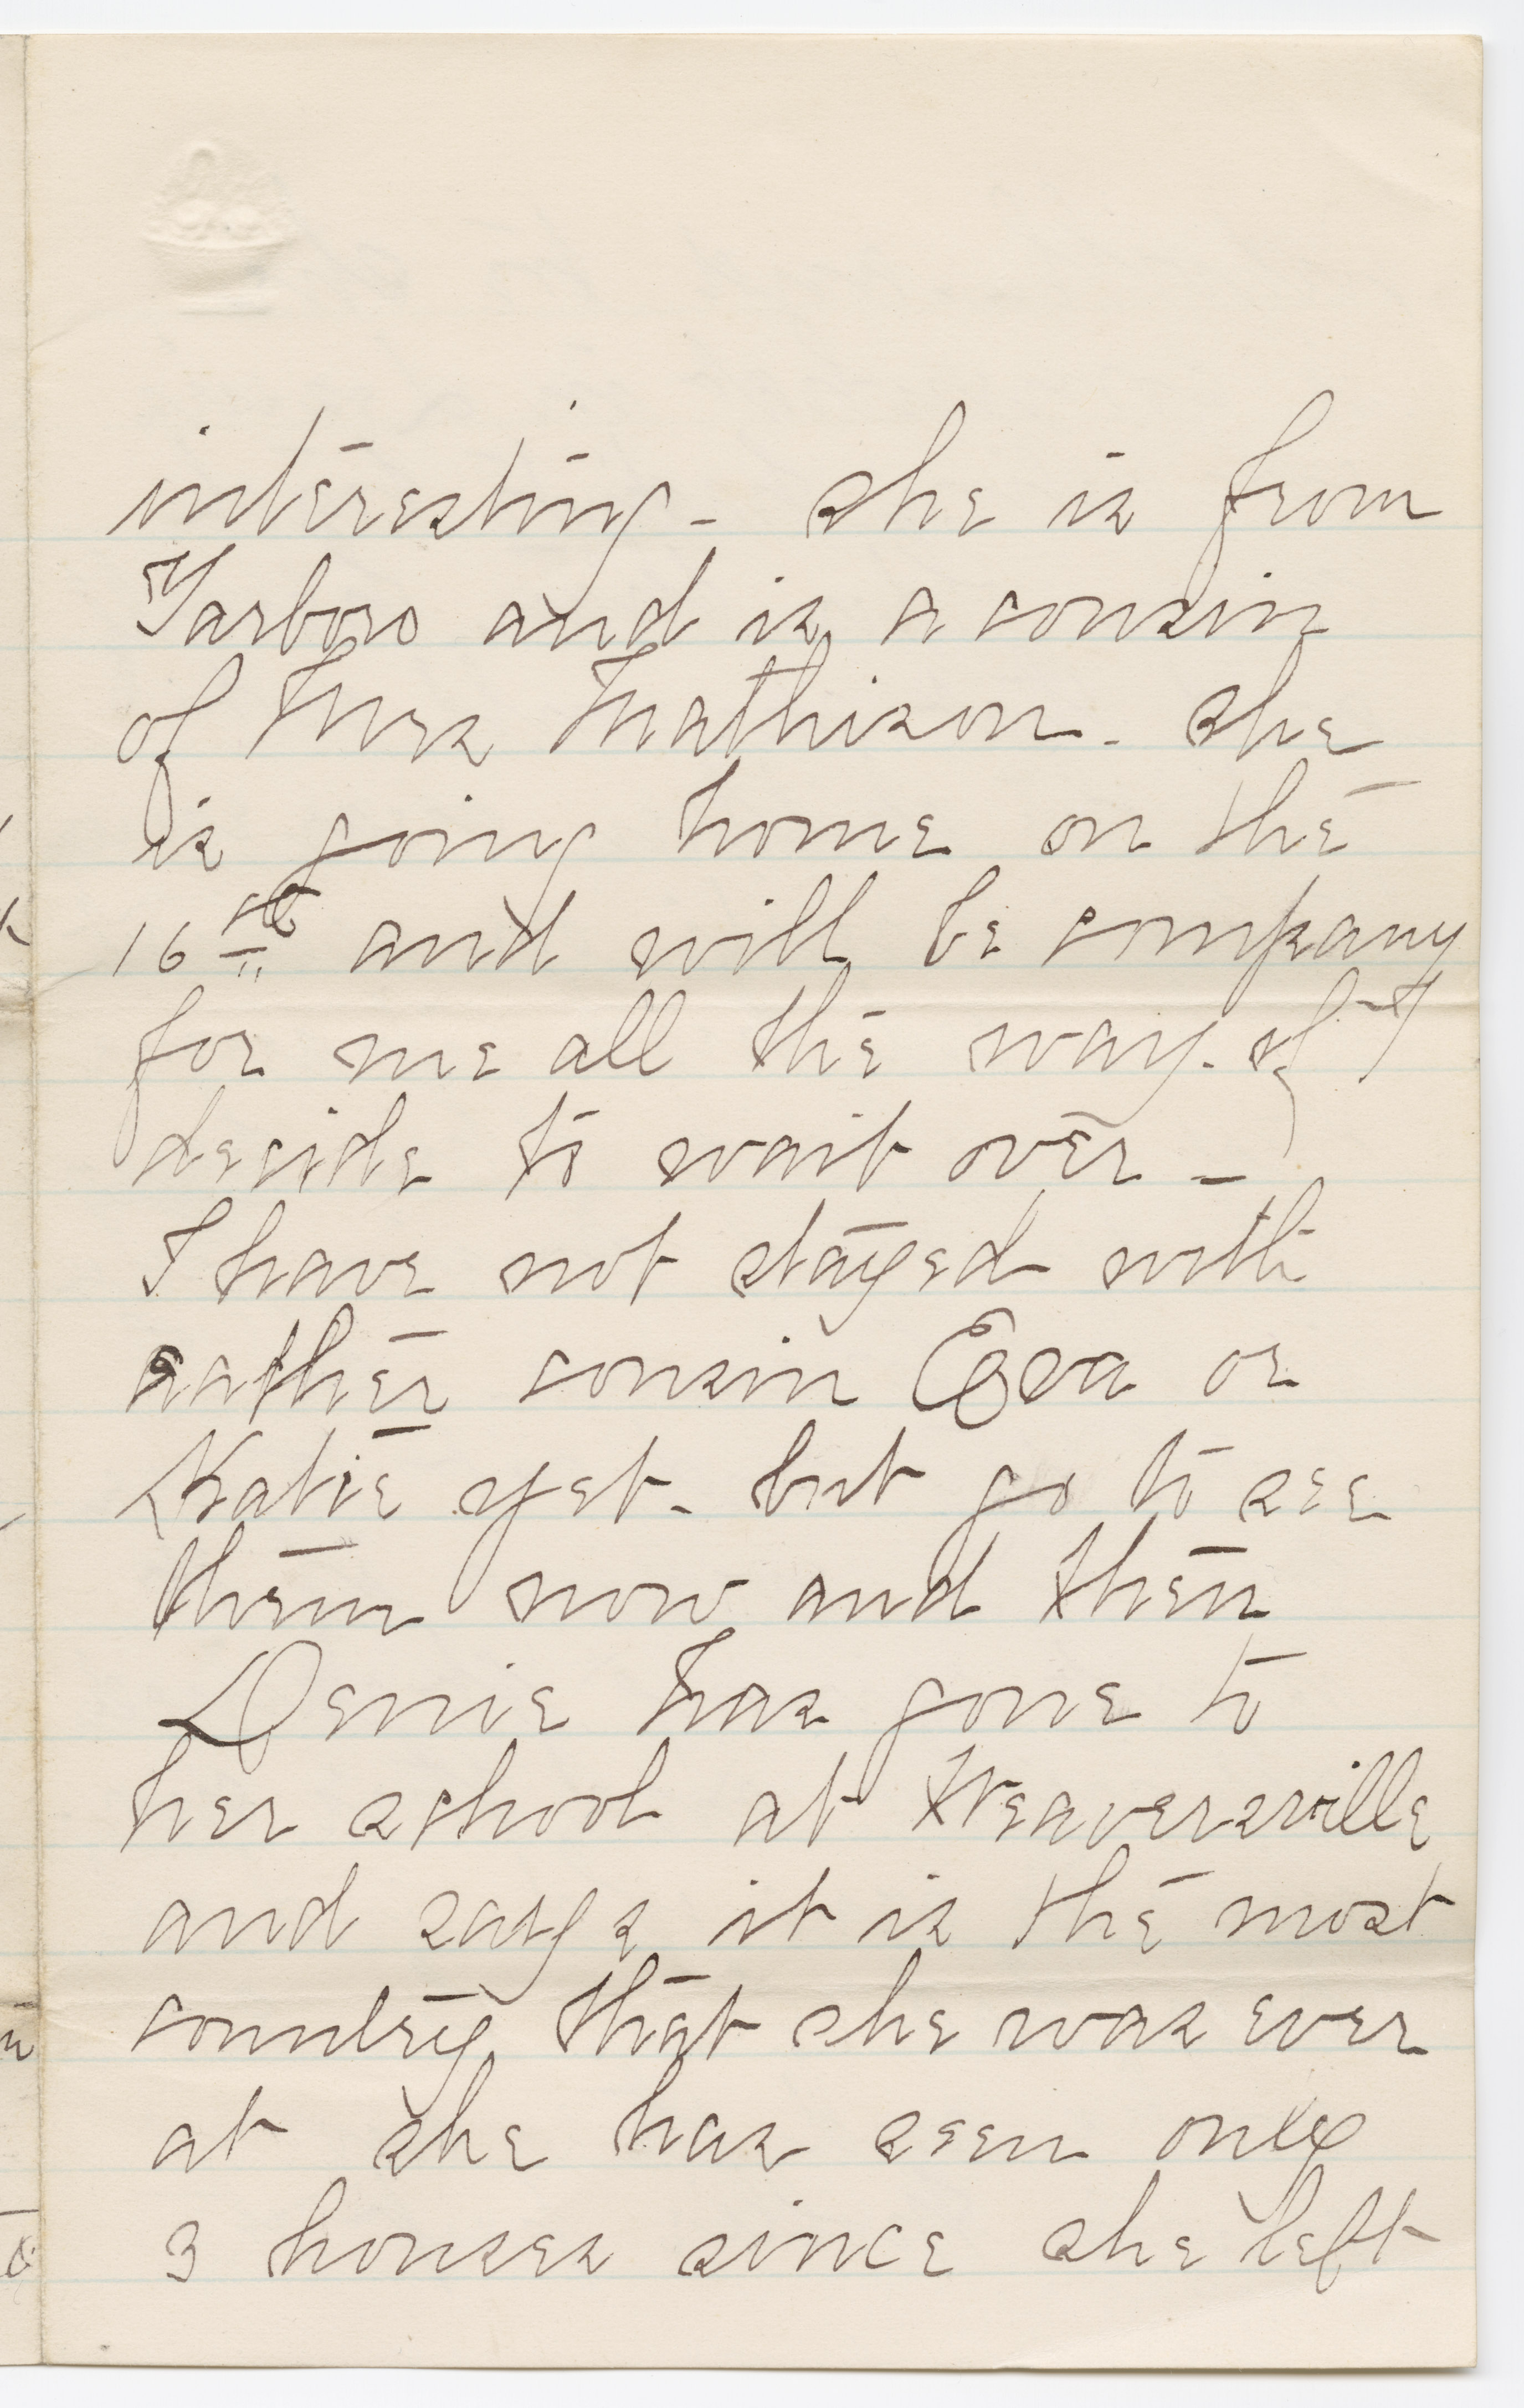 interesting - she is from
Tarboro and is a cousin
of Mrs Mathison - she
is going home on the
16th and will be company
for me all the way - if I
decide to wait over -
I have not stayed with
eather cousin Eva or
Katie yet - but go to see
them now and then
Denie has gone to
her school at Weaversville
and says it is the most
country that she was ever
at she has seen only
3 houses since she left